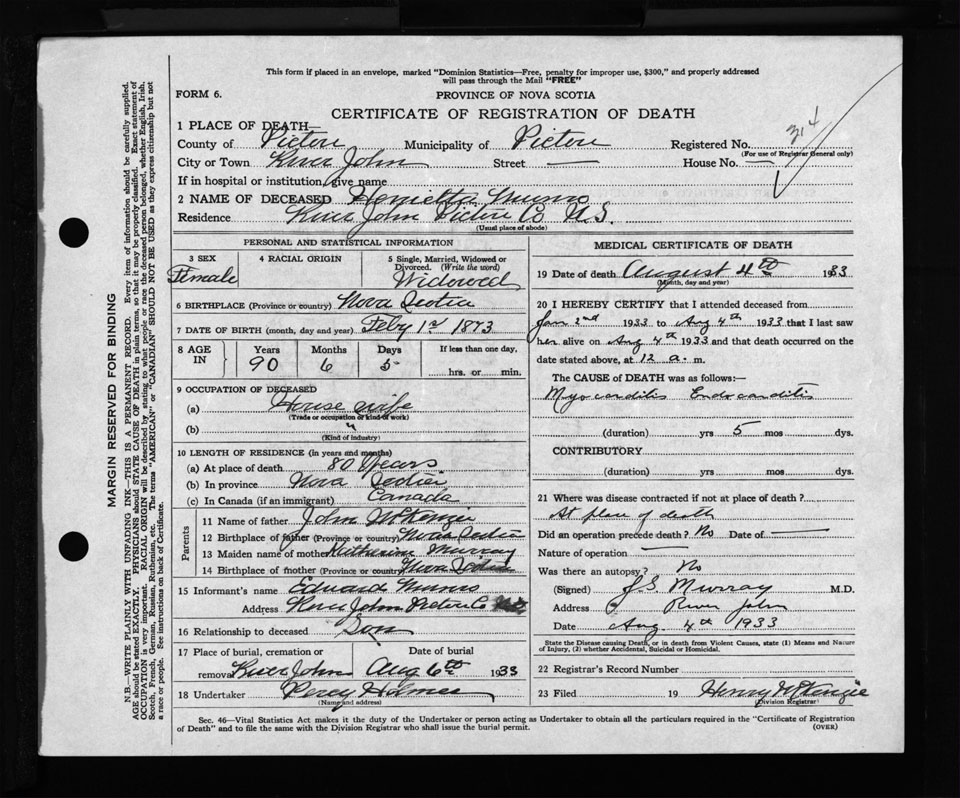 This form if placed in an envelope, marked "Dominion Statistics—Free, penalty for improper use, $300," and properly addressed
will pass through the Mail "FREE"
FORM 6.
PROVINCE OF NOVA SCOTIA
CERTIFICATE OF REGISTRATION OF DEATH
314
1 PLACE OF DEATH—
County of Pictou Municipality of Pictou Registered No.
(For use of Registrar General only)
City or Town River John Street — House No. —
If in hospital or institution, give name
2 NAME OF DECEASED Henrietta Munro
Residence River John Pictou Co N.S.
(Usual place of abode)
PERSONAL AND STATISTICAL INFORMATION
3 SEX 4 RACIAL ORIGIN 5 Single, Married, Widowed or
Divorced. (Write the word)
Female Widowed
6 BIRTHPLACE (Province or country) Nova Scotia
7 DATE OF BIRTH (month, day and year) Feby 1st 1873
8 AGE IN Years Months Days If less than one day,
90 6 5 hrs. or min.
9 OCCUPATION OF DECEASED
(a) House wife
(Trade or occupation or kind of work)
(b) "
(Kind of industry)
10 LENGTH OF RESIDENCE (in years and months)
(a) At place of death 80 Years
(b) In province Nova Scotia
(c) In Canada (if an immigrant) Canada
Parents
11 Name of father John McKenzie
12 Birthplace of father (Province or country) Nova Scotia
13 Maiden name of mother Katherine Murray
14 Birthplace of mother (Province or country) Nova Scotia
15 Informant's name Edward Munro
Address River John Pictou Co N.S.
16 Relationship to deceased Son
17 Place of burial, cremation or Date of burial
removal River John Aug 6th 1933
18 Undertaker Percy Holmes
(Name and address)
MEDICAL CERTIFICATE OF DEATH
19 Date of death August 4th 1933
(Month, day and year)
20 I HEREBY CERTIFY that I attended deceased from
Jan 2nd 1933 to Aug 4th 1933 that I last saw
her alive on Aug 4th 1933 and that death occurred on the
date stated above, at 12 a. m.
The CAUSE of DEATH was as follows:—
Myocarditis Endocarditis
(duration) yrs 5 mos dys.
CONTRIBUTORY
(duration) yrs mos dys.
21 Where was disease contracted if not at place of death?
At place of death
Did an operation precede death? No Date of —
Nature of operation —
Was there an autopsy? No
(Signed) J.S. Murray M.D.
Address River John
Date Aug 4th 1933
State the Disease causing Death, or in death from Violent Causes, state (1) Means and Nature
of Injury, (2) whether Accidental, Suicidal or Homicidal.
22 Registrar's Record Number
23 Filed 19 Henry McKenzie
Division Registrar
Sec. 46—Vital Statistics Act makes it the duty of the Undertaker or person acting as Undertaker to obtain all the particulars required in the "Certificate of Registration
of Death" and to file the same with the Division Registrar who shall issue the burial permit. (OVER)
MARGIN RESERVED FOR BINDING
N.B.—WRITE PLAINLY WITH UNFADING INK—THIS IS A PERMANENT RECORD. Every item of information should be carefully supplied.
AGE should be stated EXACTLY. PHYSICIANS should STATE CAUSE OF DEATH in plain terms, so that it may be properly classified. Exact statement of
OCCUPATION is very important. RACIAL ORIGIN will be described by stating to what people or race the deceased person belonged, whether English, Irish,
Scotch, French, German, Russian, Ruthenian, etc. The terms "AMERICAN" or "CANADIAN" SHOULD NOT BE USED as they express citizenship but not
a race or people. See instructions on back of Certificate.